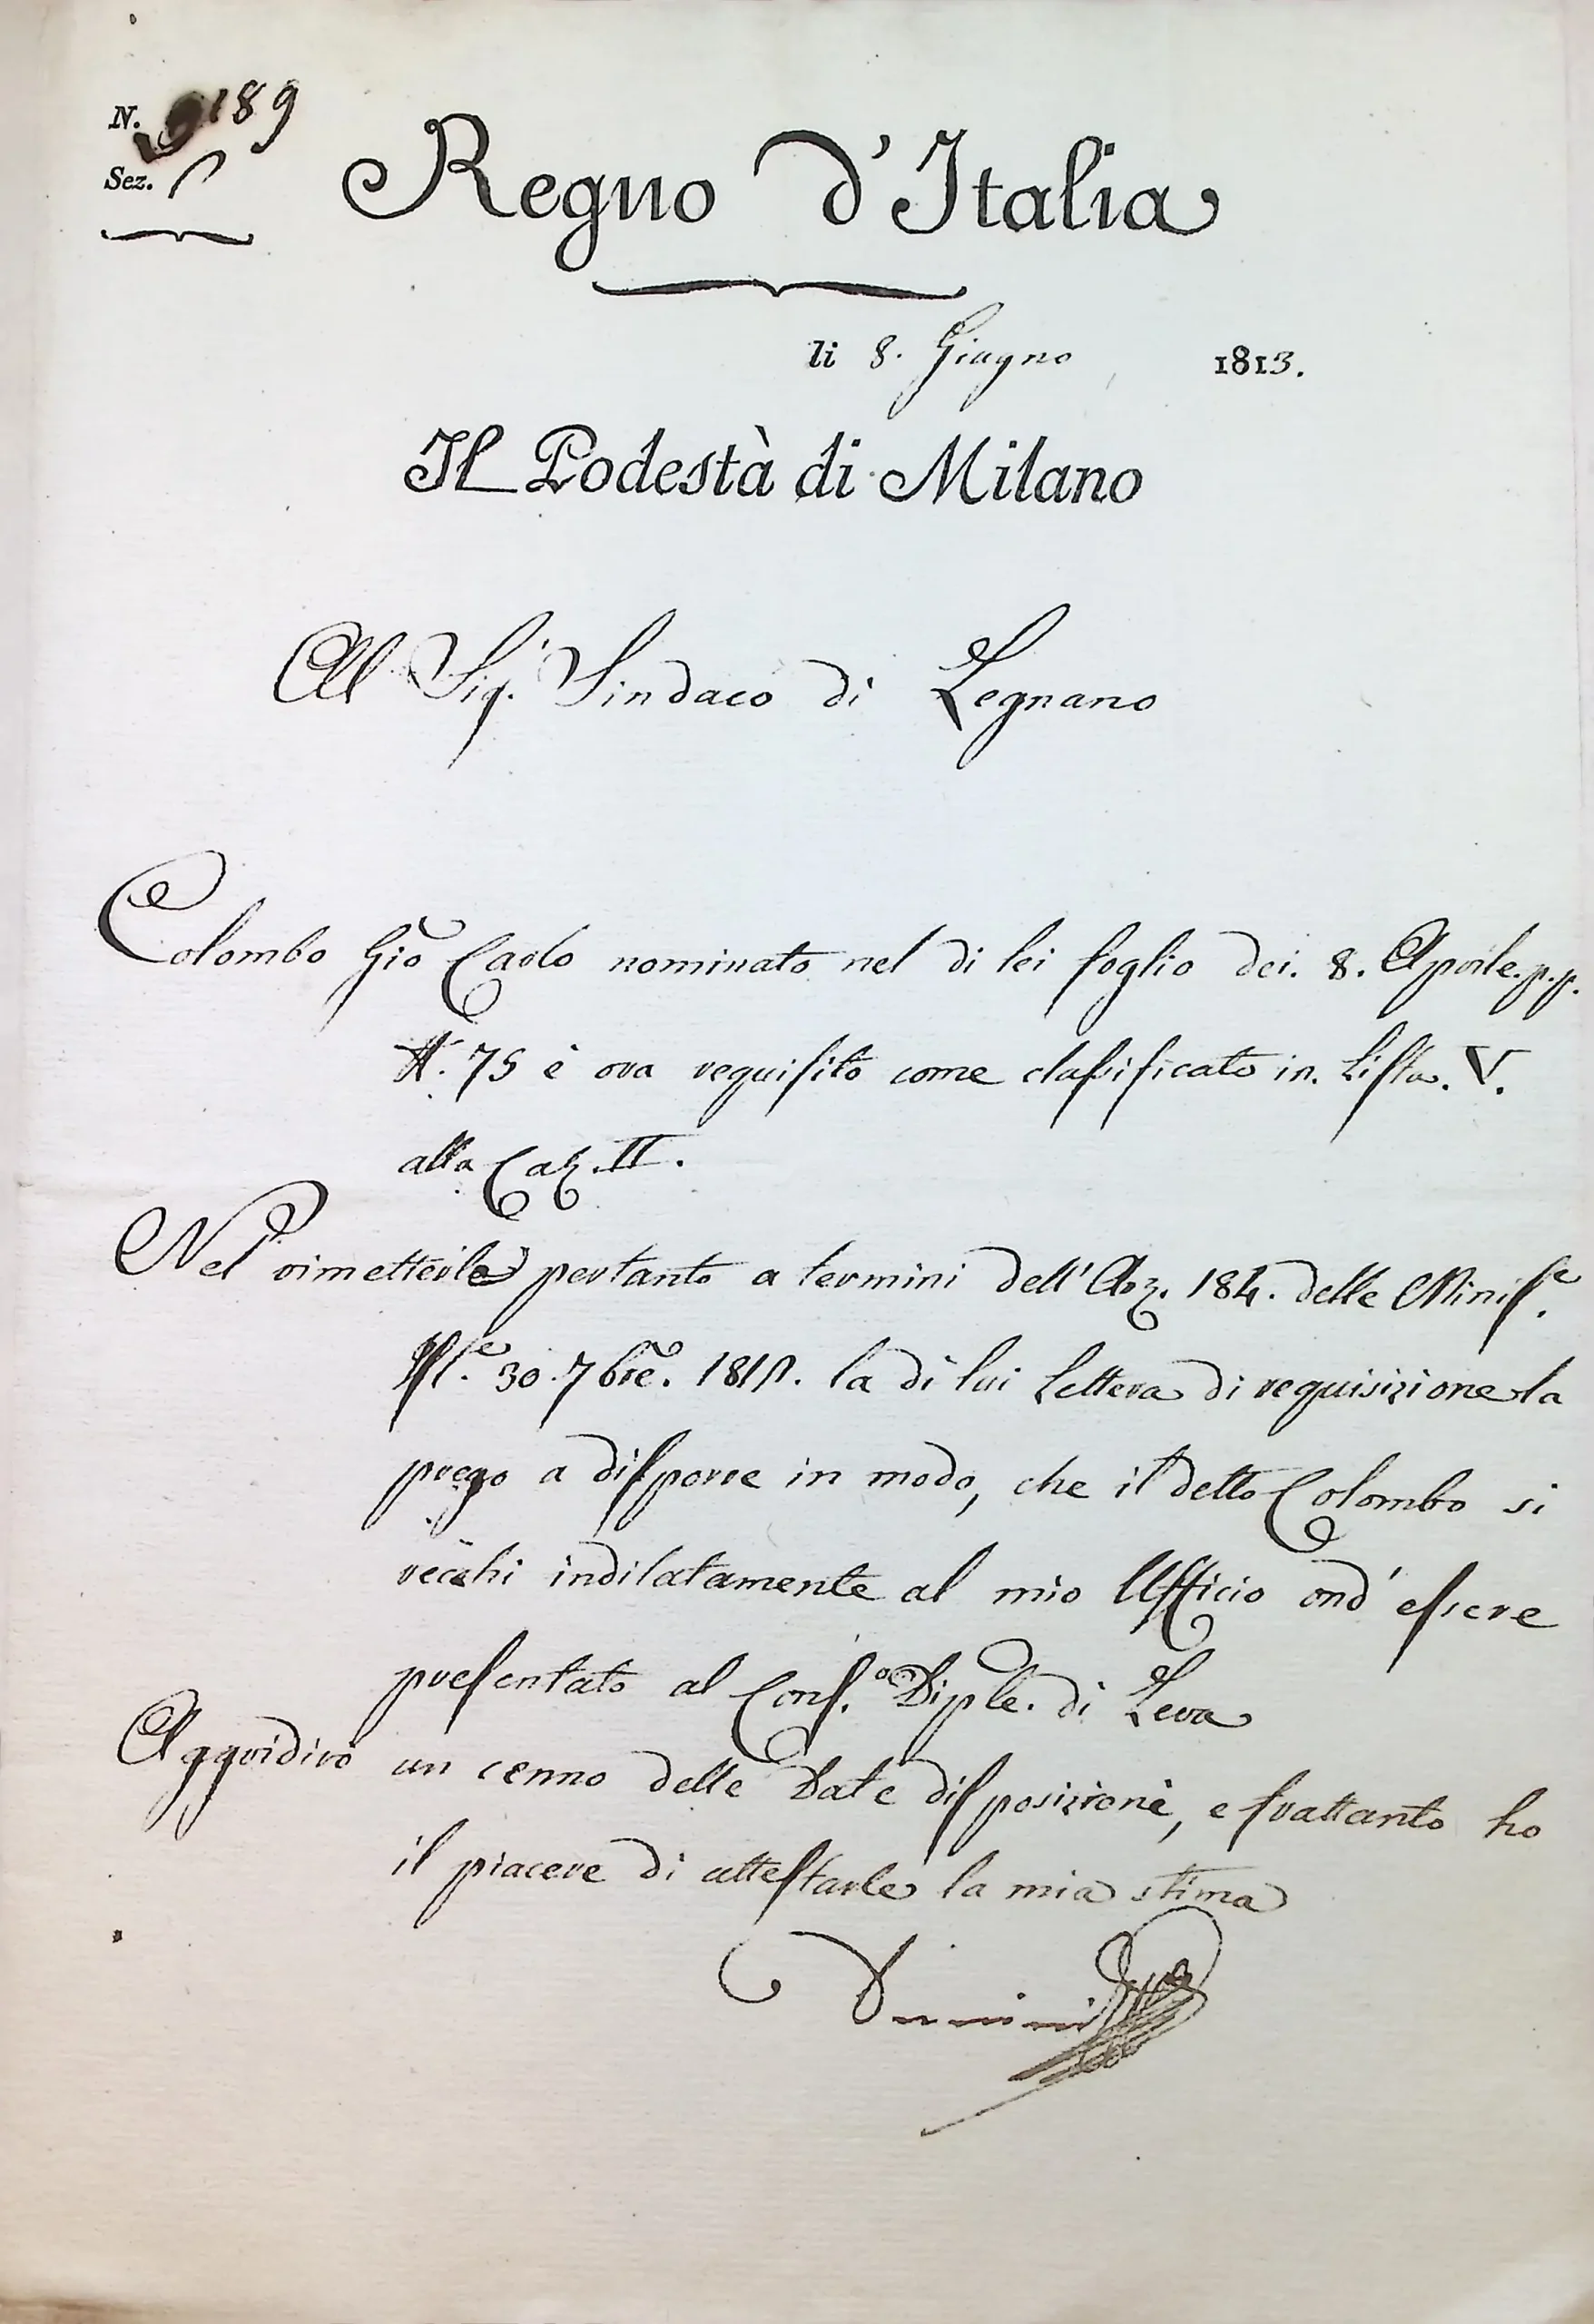 N. 9189
Sez.
Regno d'Italia
li 8. Giugno 1813.
Il Podestà di Milano
Al Sig.r Sindaco di Legnano
Colombo Gio Carlo nominato nel di lei foglio dei. 8. Aprile. p. p.
N. 75 è ora requisito come classificato in. Lista. V.
alla Caz. II.
Nel rimetterle pertanto a termini dell' Arz. 184. delle Minis.e
30. 7bre. 181 la di lui Lettera di requisizione la
prego a disporre in modo, che il detto Colombo si
recchi indilatamente al mio Ufficio ond' essere
presentato al Cons.o Diple. di Leva
Aggridirò un cenno delle Date disposizione, e frattanto ho
il piacere di attestarle la mia stima
Durini